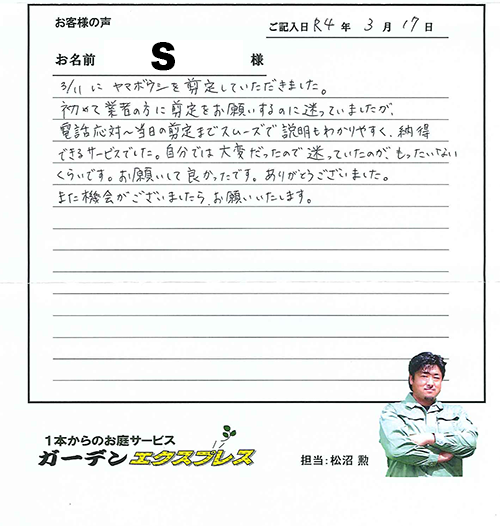 お客様の声
ご記入日 R4 年 3 月 17 日
お名前 S 様
3/11 に ヤマボウシを剪定していただきました。
初めて業者の方に剪定をお願いするのに迷っていましたが、
電話応対〜当日の剪定までスムーズで説明もわかりやすく、納得
できるサービスでした。自分では大変だったので迷っていたのが、もったいない
くらいです。お願いして良かったです。ありがとうございました。
また機会がございましたら、お願いいたします。
1本からのお庭サービス
ガーデンエクスプレス
担当:松沼 勲